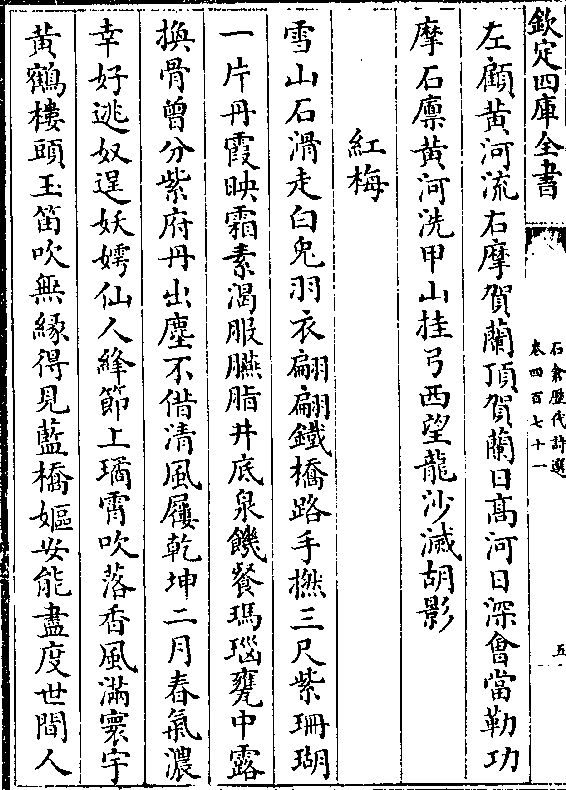 欽定四庫全書
石倉歷代詩選
卷四百七十一
五
左顧黃河流右摩賀蘭頂賀蘭日髙河日深㑹當勒功
摩石廪黃河洗甲山挂弓西望龍沙滅胡影
紅梅
雪山石滑走白兎羽衣翩翩鐵橋路手撚三尺紫珊瑚
一片丹霞映霜素渴服臙脂井底泉饑餐瑪瑙甕中露
換骨曽分紫府丹出塵不借清風屨乾坤二月春氣濃
幸好逃奴逞妖嫮仙人絳節上璚霄吹落香風滿寰宇
黃鶴樓頭玉笛吹無緣得見藍橋嫗安能盡度世間人